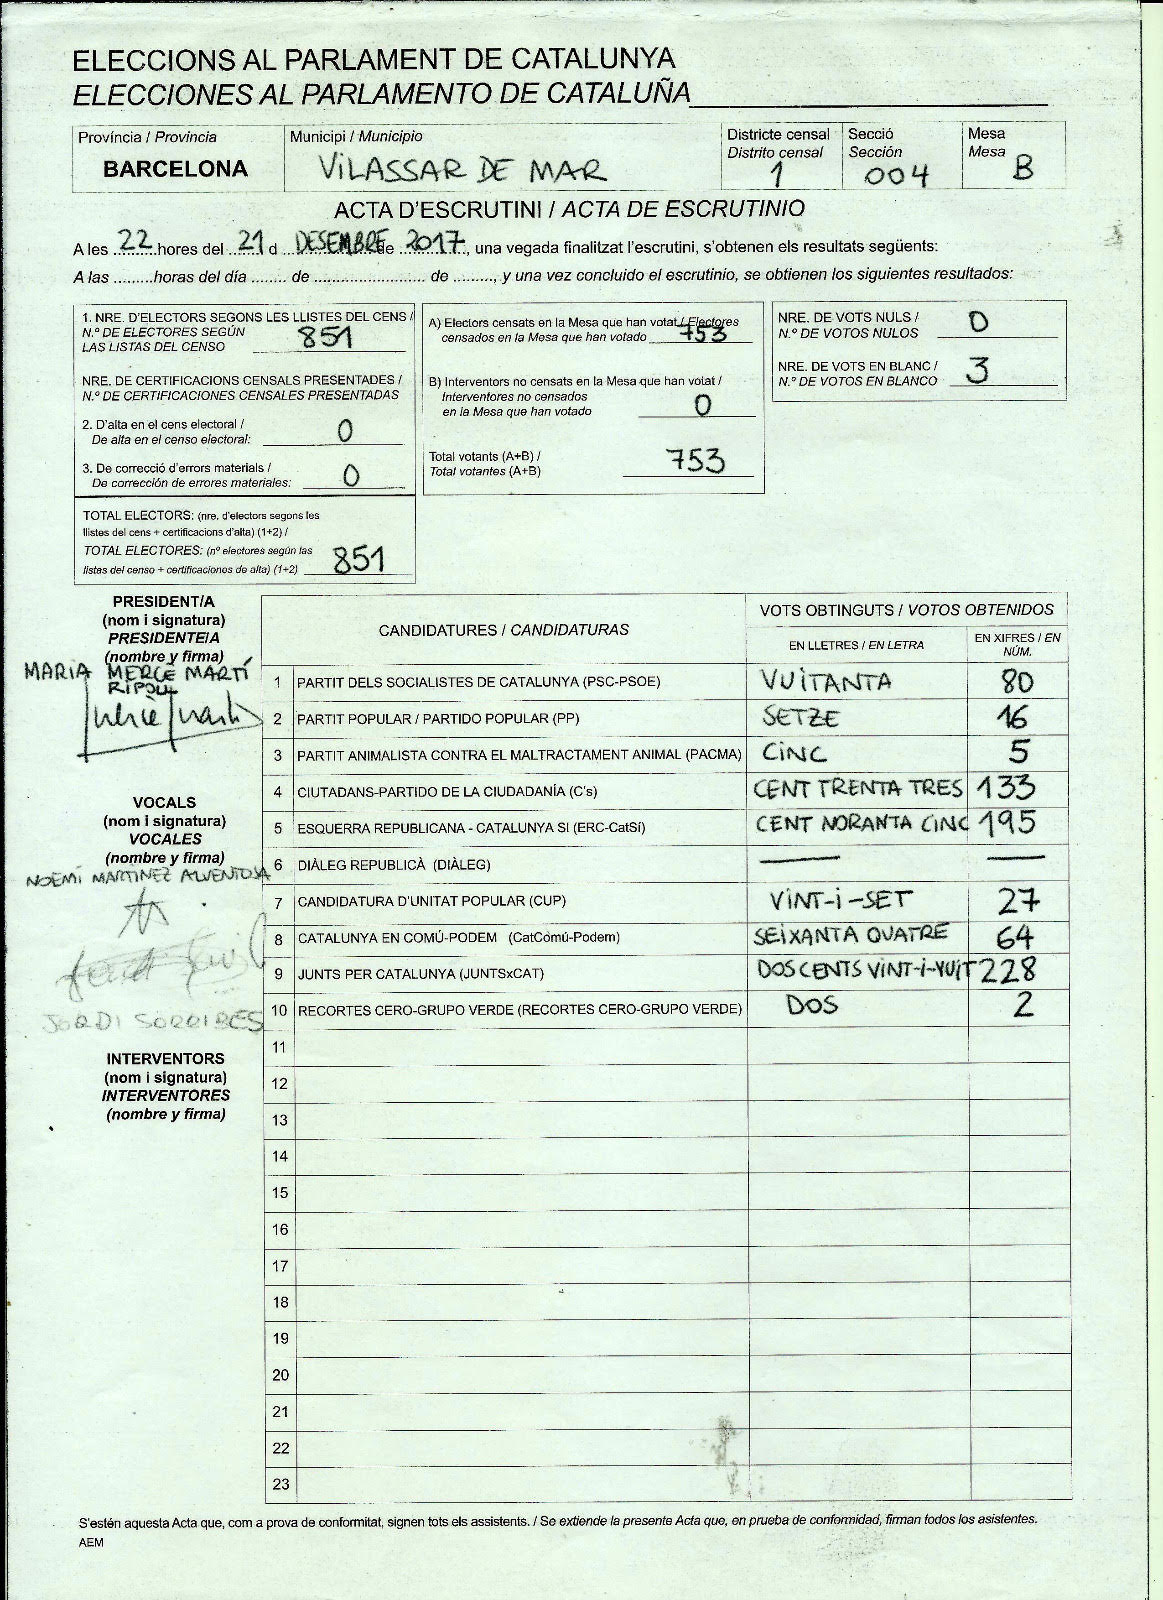 ELECCIONS AL PARLAMENT DE CATALUNYA
ELECCIONES AL PARLAMENTO DE CATALUÑA
Província / Provincia
BARCELONA
Municipi / Municipio
VILASSAR DE MAR
Districte censal
Distrito censal
1
Secció
Sección
004
Mesa
Mesa
B
ACTA D'ESCRUTINI / ACTA DE ESCRUTINIO
A les 22 hores del 21 d DESEMBRE de 2017, una vegada finalitzat l'escrutini, s'obtenen els resultats següents:
A las .........horas del día ........ de ......................... de ........., y una vez concluido el escrutinio, se obtienen los siguientes resultados:
1. NRE. D'ELECTORS SEGONS LES LLISTES DEL CENS /
N.º DE ELECTORES SEGÚN
LAS LISTAS DEL CENSO 851
NRE. DE CERTIFICACIONS CENSALS PRESENTADES /
N.º DE CERTIFICACIONES CENSALES PRESENTADAS
2. D'alta en el cens electoral /
De alta en el censo electoral: 0
3. De correcció d'errors materials /
De corrección de errores materiales: 0
TOTAL ELECTORS: (nre. d'electors segons les
llistes del cens + certificacions d'alta) (1+2) /
TOTAL ELECTORES: (nº electores según las
listas del censo + certificaciones de alta) (1+2) 851
A) Electors censats en la Mesa que han votat / Electores
censados en la Mesa que han votado 753
B) Interventors no censats en la Mesa que han votat /
Interventores no censados
en la Mesa que han votado 0
Total votants (A+B) /
Total votantes (A+B) 753
NRE. DE VOTS NULS /
N.º DE VOTOS NULOS 0
NRE. DE VOTS EN BLANC /
N.º DE VOTOS EN BLANCO 3
PRESIDENT/A
(nom i signatura)
PRESIDENTE/A
(nombre y firma)
MARIA MERCÈ MARTÍ
RIPOLL
VOCALS
(nom i signatura)
VOCALES
(nombre y firma)
NOEMÍ MARTINEZ ALVENTOSA
JORDI SORRIBES
INTERVENTORS
(nom i signatura)
INTERVENTORES
(nombre y firma)
CANDIDATURES / CANDIDATURAS
VOTS OBTINGUTS / VOTOS OBTENIDOS
EN LLETRES / EN LETRA
EN XIFRES / EN
NÚM.
1 PARTIT DELS SOCIALISTES DE CATALUNYA (PSC-PSOE) VUITANTA 80
2 PARTIT POPULAR / PARTIDO POPULAR (PP) SETZE 16
3 PARTIT ANIMALISTA CONTRA EL MALTRACTAMENT ANIMAL (PACMA) CINC 5
4 CIUTADANS-PARTIDO DE LA CIUDADANÍA (C's) CENT TRENTA TRES 133
5 ESQUERRA REPUBLICANA - CATALUNYA SI (ERC-CatSí) CENT NORANTA CINC 195
6 DIÀLEG REPUBLICÀ (DIÀLEG) — —
7 CANDIDATURA D'UNITAT POPULAR (CUP) VINT-I-SET 27
8 CATALUNYA EN COMÚ-PODEM (CatComú-Podem) SEIXANTA QUATRE 64
9 JUNTS PER CATALUNYA (JUNTSxCAT) DOS CENTS VINT-I-VUIT 228
10 RECORTES CERO-GRUPO VERDE (RECORTES CERO-GRUPO VERDE) DOS 2
11
12
13
14
15
16
17
18
19
20
21
22
23
S'estén aquesta Acta que, com a prova de conformitat, signen tots els assistents. / Se extiende la presente Acta que, en prueba de conformidad, firman todos los asistentes.
AEM